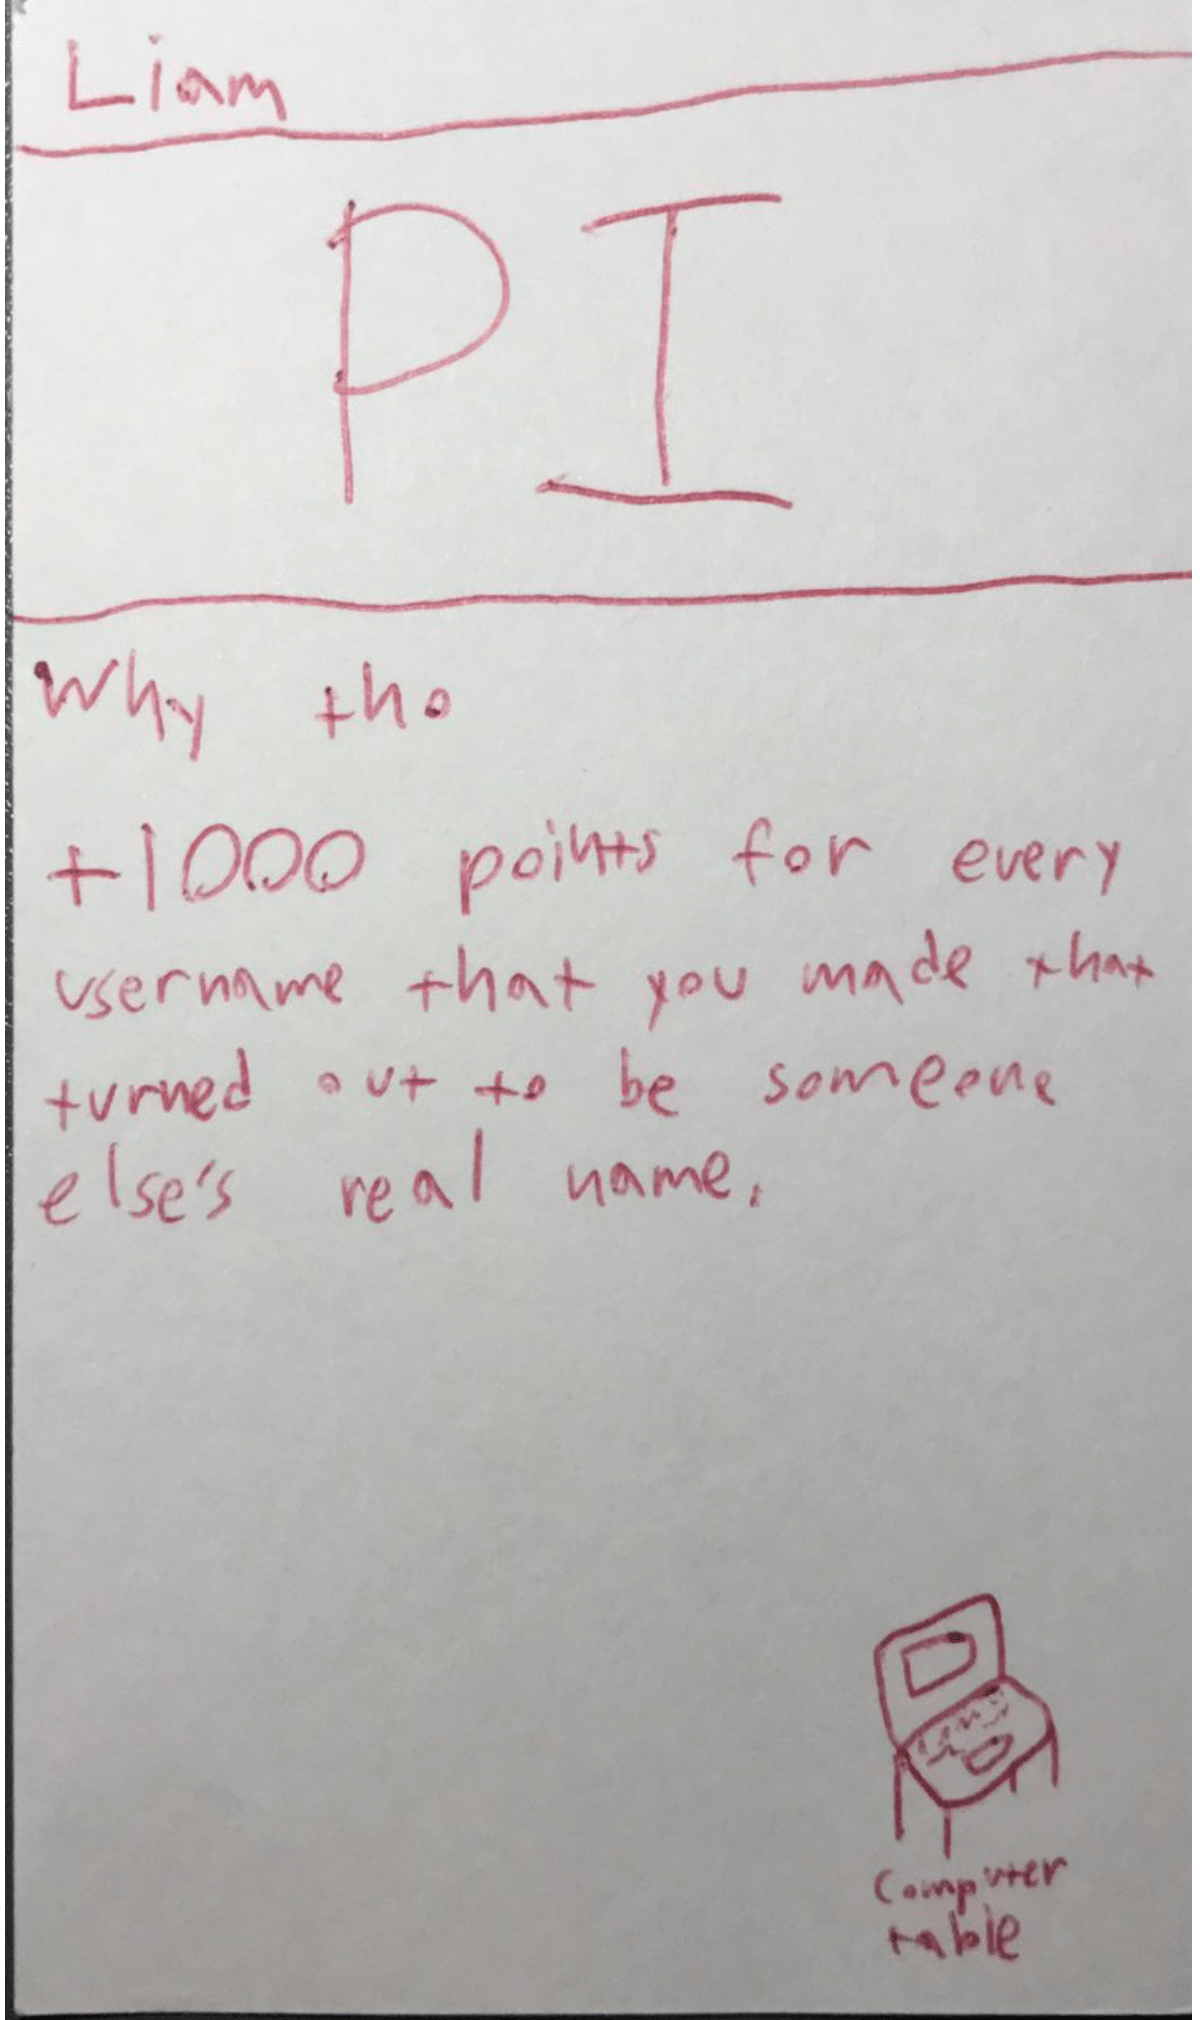 Liam
PI
Why tho
+1000 points for every
username that you made that
turned out to be someone
else's real name.
Computer
table